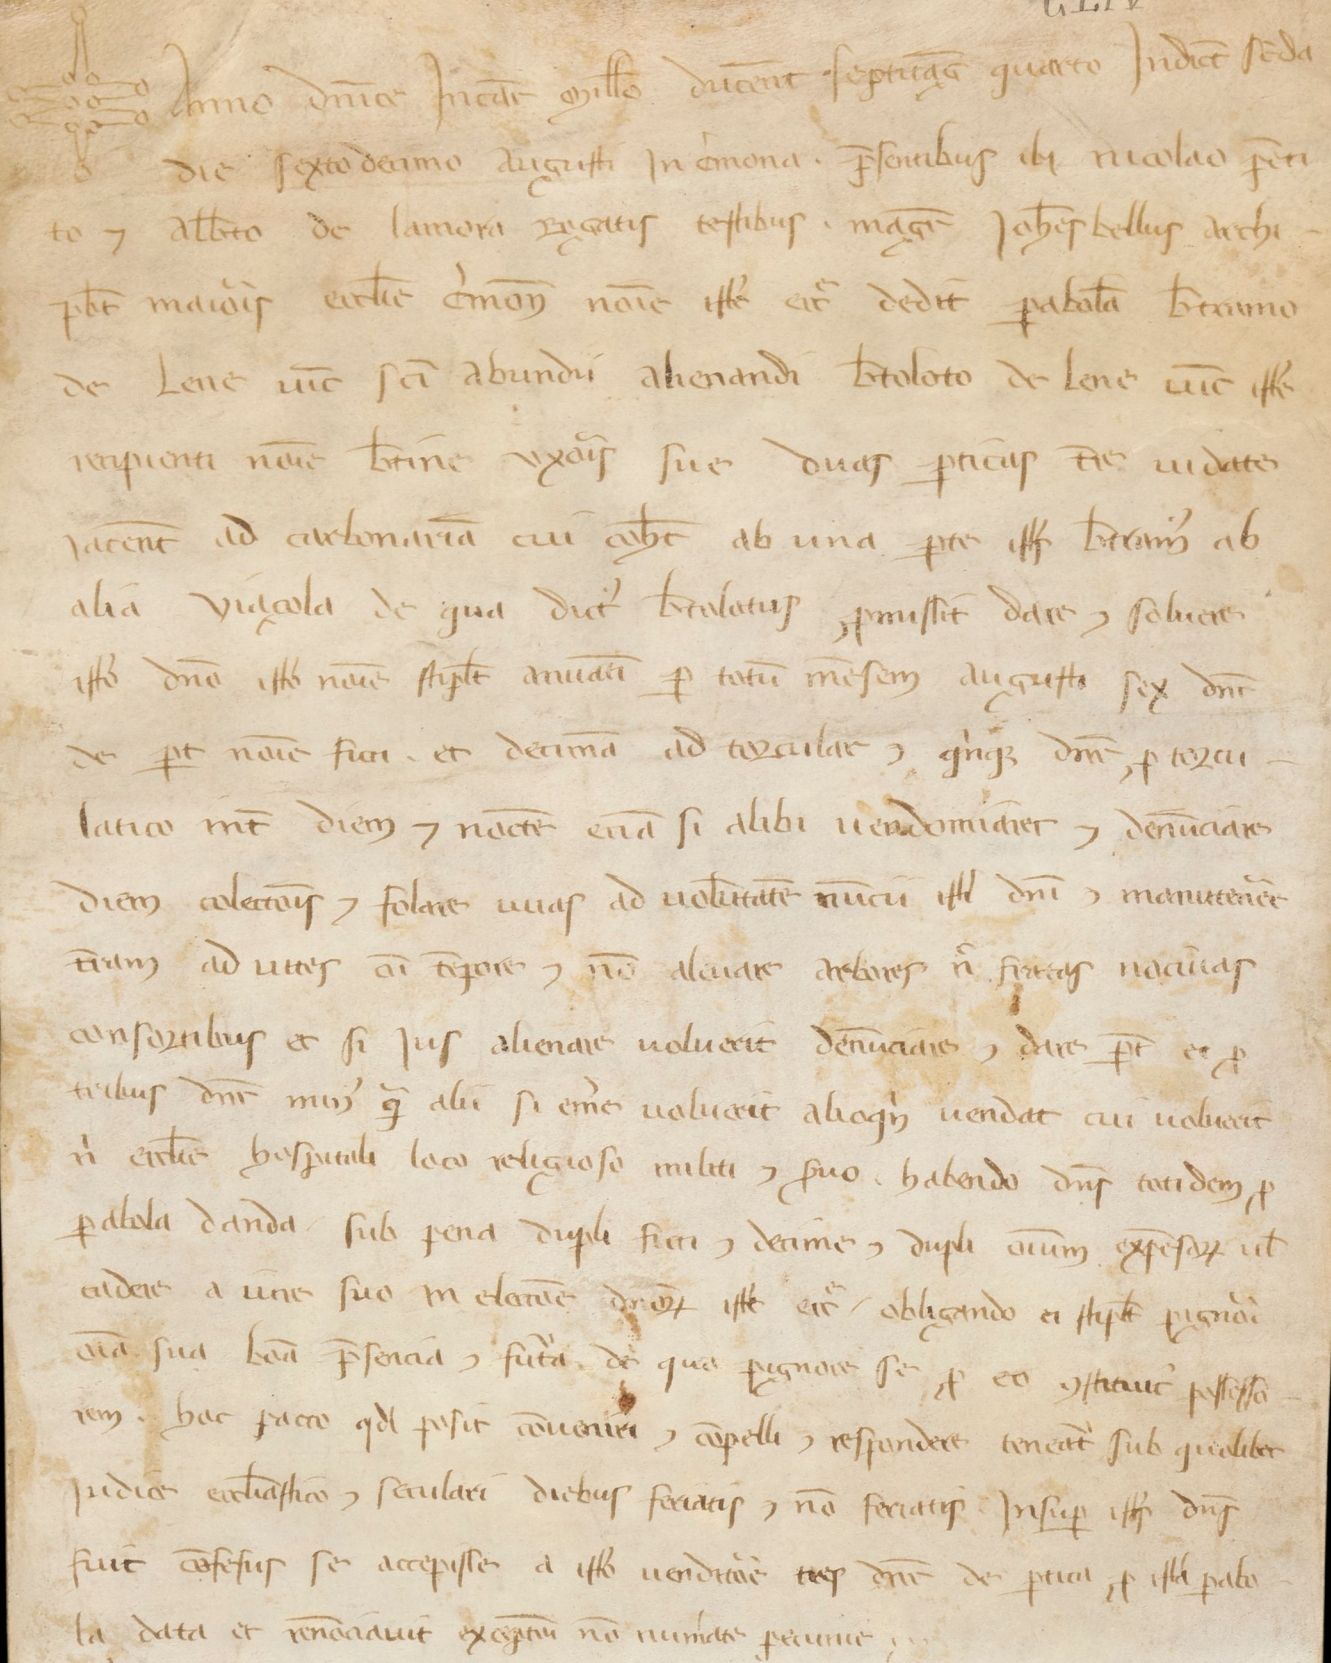 Anno dnice Incar Millo ducent septuag quarto Indict scda
die sextodecimo augusti in Cmona. psentibus ibi nicolao peti
to ⁊ Albto de lamora rogatis testibus. mag Johes bellus archi-
pbt maioris ecclie Cmon noie iste ecc dedit pabola btramo
de Lene vic sci abundii alienandi btoloto de Lene vic iste
recipienti noie btine uxoris sue duas pticas tre vidate
iacent ad carbonaria cui cohet ab una pte iste btram ab
alia viacola de qua dict btolotus pmissit dare ⁊ solvere
isto dno isto noie stiplt anuati p totu mesem augusti sex dnr
de pt noie ficti. et decima ad torcular ⁊ qinq dnr p torcu-
latico int diem ⁊ nocte etia si alibi vendemiaret ⁊ denunciare
diem colectois ⁊ folare uvas ad volutate nuncii isti dni ⁊ manutenere
tram ad vites oi tepore ⁊ no alevare arbores n fratas nocivas
consortibus et si Jus alienare voluerit denunciare ⁊ dare pt et p
tribus dnr min q alii si eme voluerit alioqn vendat cui voluerit
n ecclie hospitali loco religioso militi ⁊ svo. habendo dns totidem p
pabola danda sub pena dupli ficti ⁊ decime ⁊ dupli oium expesar ul
cadere a iure suo in electoe dnor iste ecc obligando ei stiplt pignoi
oia sua boa psencia ⁊ futa. de quo pignore se p eo ⁊stituit possesso-
rem. hac pacto qd posit coveniri ⁊ copelli ⁊ respondere teneat sub quolibet
Judice eccliastico ⁊ seculari diebus feriatis ⁊ no feriatis. Insup iste dns
fuit cofesus se accepisse a isto venditore tres dnr de ptica p ista pabo-
la data et renociavit exceptoi no numate pecunie